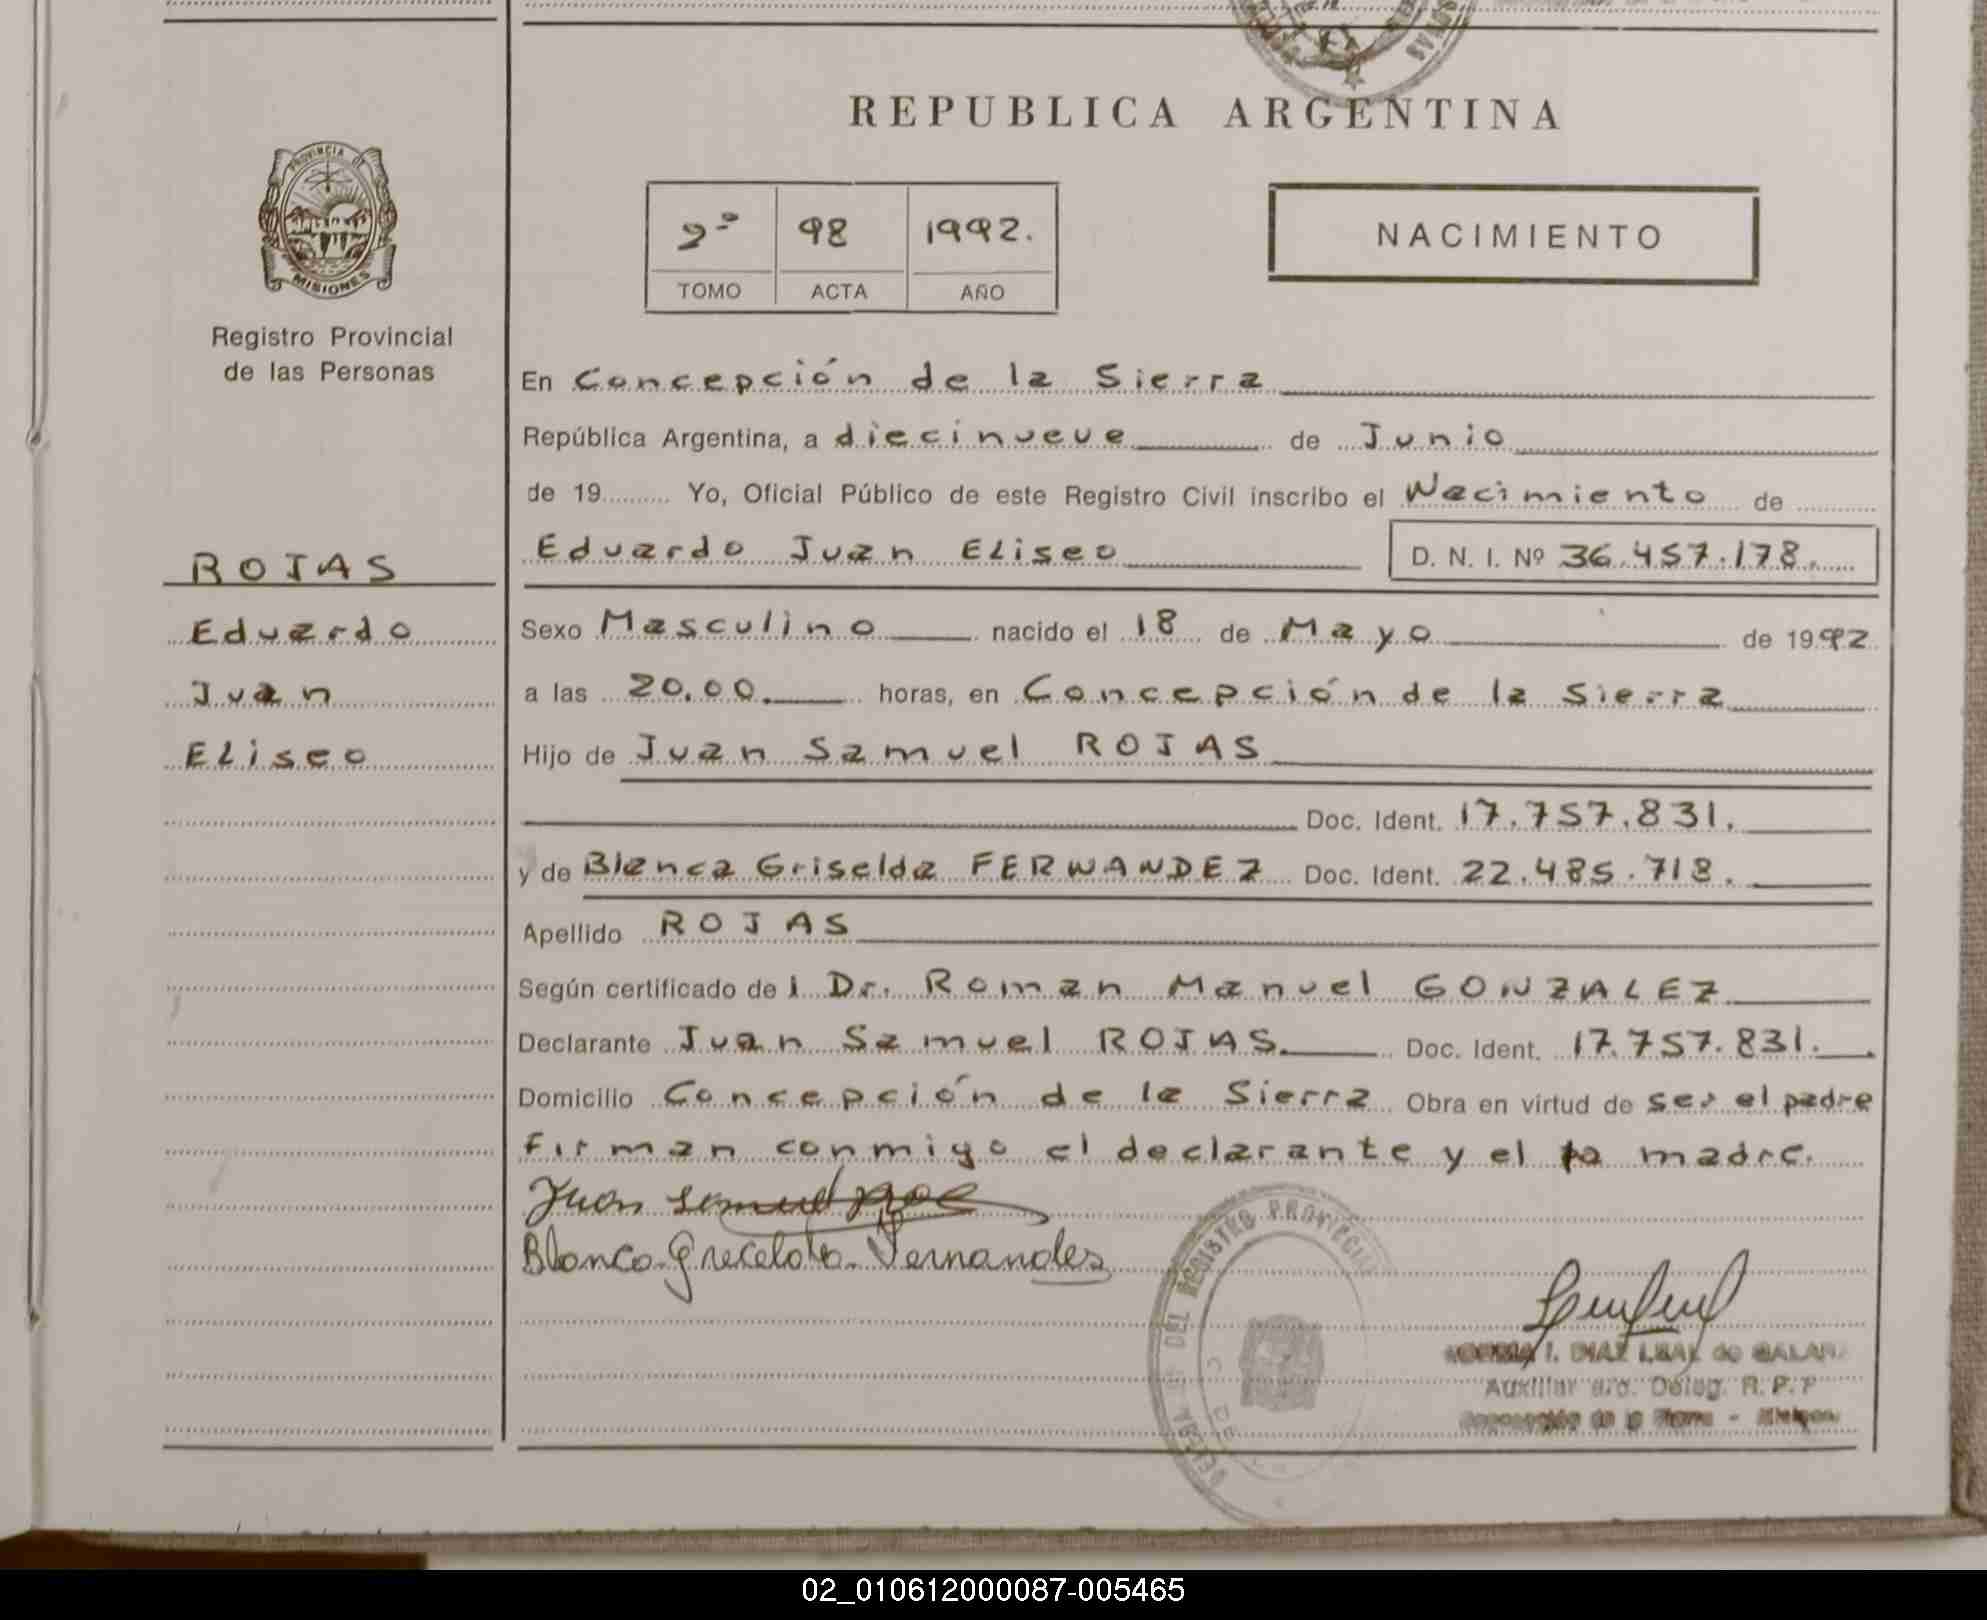 REPUBLICA ARGENTINA
PROVINCIA DE
MISIONES
Registro Provincial
de las Personas
2º 98 1992.
TOMO ACTA AÑO
NACIMIENTO
ROJAS
Eduardo
Juan
Eliseo
En Concepción de la Sierra
República Argentina, a diecinueve de Junio
de 19 Yo, Oficial Público de este Registro Civil inscribo el Nacimiento de
Eduardo Juan Eliseo D. N. I. Nº 36.457.178.
Sexo Masculino nacido el 18 de Mayo de 1992
a las 20.00. horas, en Concepción de la Sierra
Hijo de Juan Samuel ROJAS
Doc. Ident. 17.757.831.
y de Blanca Griselda FERNANDEZ Doc. Ident. 22.485.718.
Apellido ROJAS
Según certificado del Dr. Roman Manuel GONZALEZ
Declarante Juan Samuel ROJAS. Doc. Ident. 17.757.831.
Domicilio Concepción de la Sierra Obra en virtud de ser el padre
Firman conmigo el declarante y el la madre.
Juan Samuel
Blanca Fernandez
DEL REGISTRO PROVINCIAL
I. DIAZ LEAL de
Auxiliar a/c. Deleg. R. P. P
02_010612000087-005465